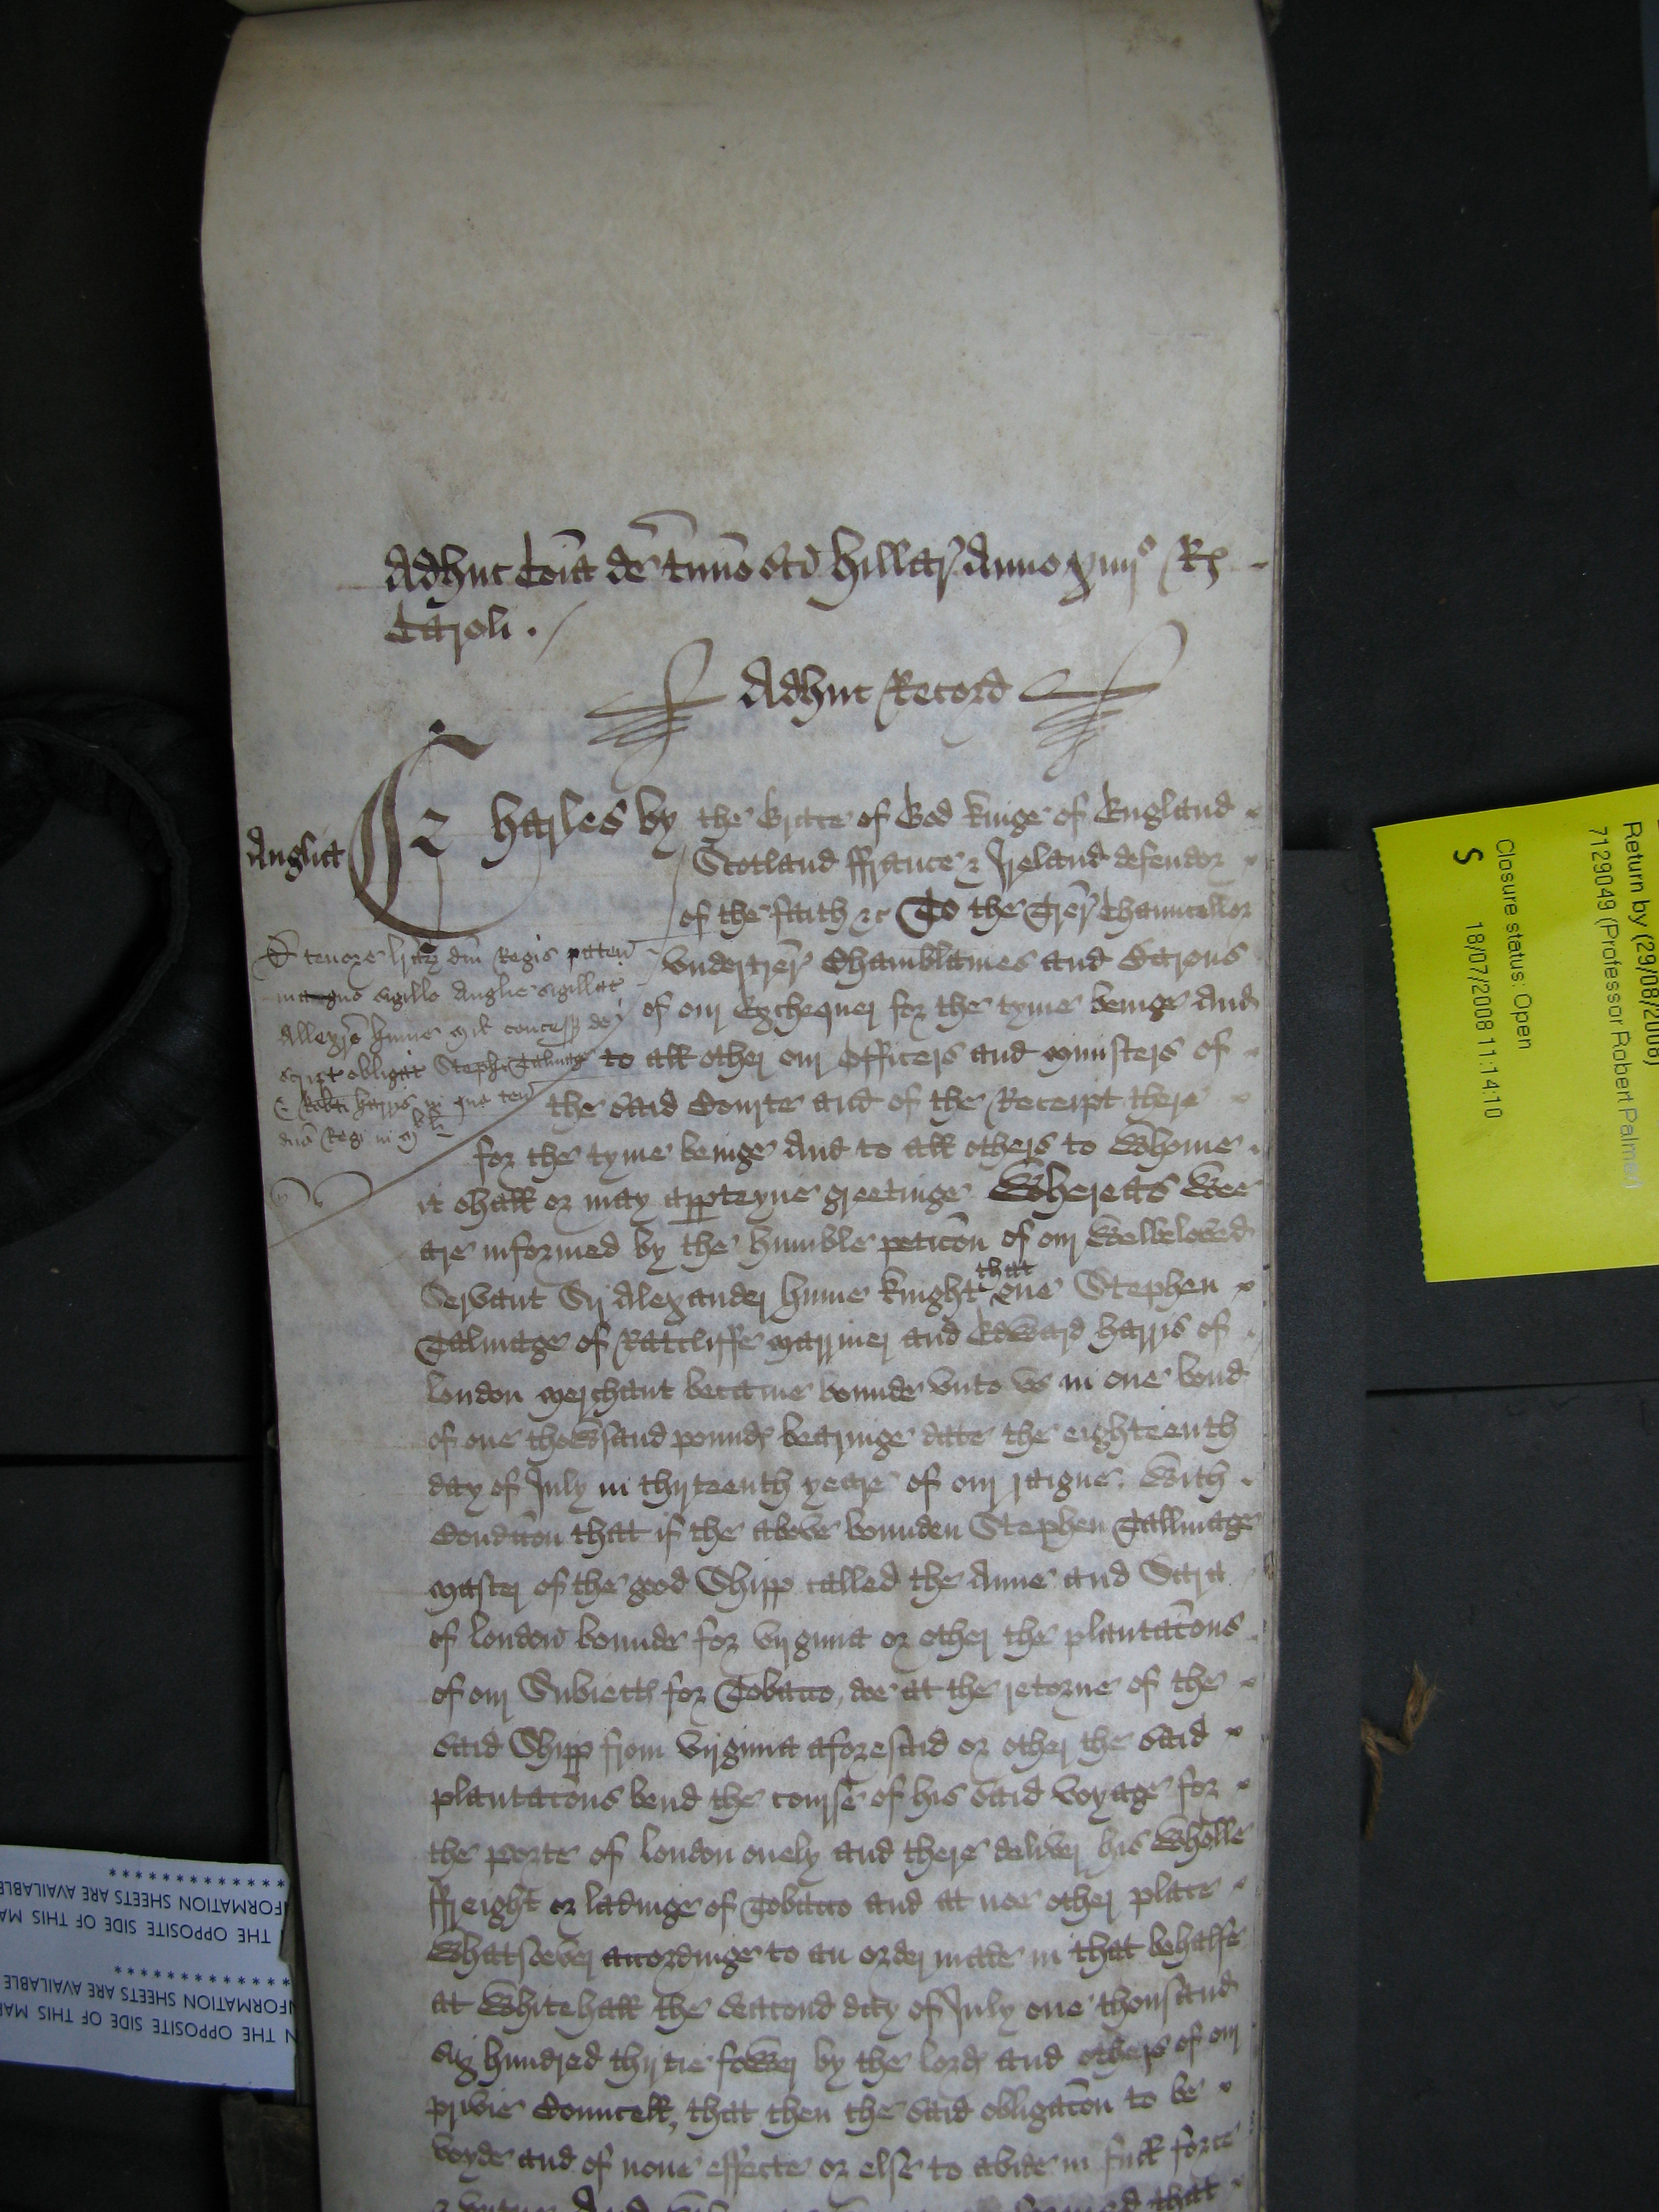 Adhuc Coīa de t'mino Sci Hillar' Anno xiiij° R's
Caroli ./
Adhuc Record
Anglia
Charles by the Grace of God Kinge of England
Scotland ffrance & Ireland defendor
of the faith &c To the Trer' Chauncellor
undertrer' Chamblaines and Barons
of our Exchequer for the tyme beinge And
to all other our Officers and Ministers of
the said Courte and of the Receipt there
for the tyme beinge And to all others to Whome
it shall or may apperteyne greetinge Whereas Wee
are informed by the humble petic̄on of our Welbeloved
Servant Sr Alexander Hume knight that one Stephen
Talmage of Ratcliffe Marriner and Edward Harris of
London Merchant became bounde unto us in one bond
of one thowsand pounds bearinge date the eighteenth
day of July in thirteenth yeare of our raigne. With
Condic̄on that if the above bounden Stephen Tallmage
Master of the good Shipp called the Anne and Sara
of London bounde for Virginia or other the plantac̄ons
of our Subiects for Tobacco, doe at the retorne of the
said Shipp from Virginia aforesaid or other the said
plantac̄ons bend the course of his said voyage for
the porte of London onely and there deliver his Wholle
ffreight or ladinge of Tobacco and at noe other place
Whatsoever accordinge to an order made in that behalfe
at Whitehall the seacond day of July one thousand
six hundred thirtie fower by the lords and others of our
privie Councell, that then the said obligac̄on to be
voyde and of none effecte or else to abide in full force
& vertue And
that
D' tenore l'rar' dni Regis paten'
magno sigillo Anglie sigillat'
Allex'o Hume Mil' concess' de
script' obligat' Steph'i Talmage
& Harris in
dno Regi in
Return by (29/08/2008)
7129049 (Professor Robert Palmer)
Closure status: Open
18/07/2008 11:14:10
S
N THE OPPOSITE SIDE OF THIS MA
NFORMATION SHEETS ARE AVAILABLE
**************
THE OPPOSITE SIDE OF THIS MA
FORMATION SHEETS ARE AVAILABL
*************